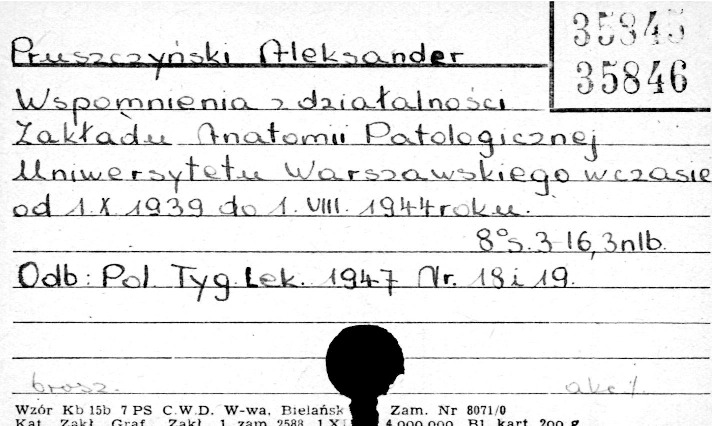 35845
35846
Pruszczyński Aleksander
Wspomnienia z działalności
Zakładu Anatomii Patologicznej
Uniwersytetu Warszawskiego w czasie
od 1.X 1939 do 1.VIII.1944 roku.
8° s. 3-16, 3 nlb.
Odb: Pol. Tyg. Lek. 1947 Nr. 18 i 19.
brosz.
Wzór Kb 15b 7 PS C.W.D. W-wa, Bielańsk Zam. Nr 8071/0
Kat. Zakł. Graf. Zakł. 1 zam. 2588 4.000.000 Bl. kart. 200 g